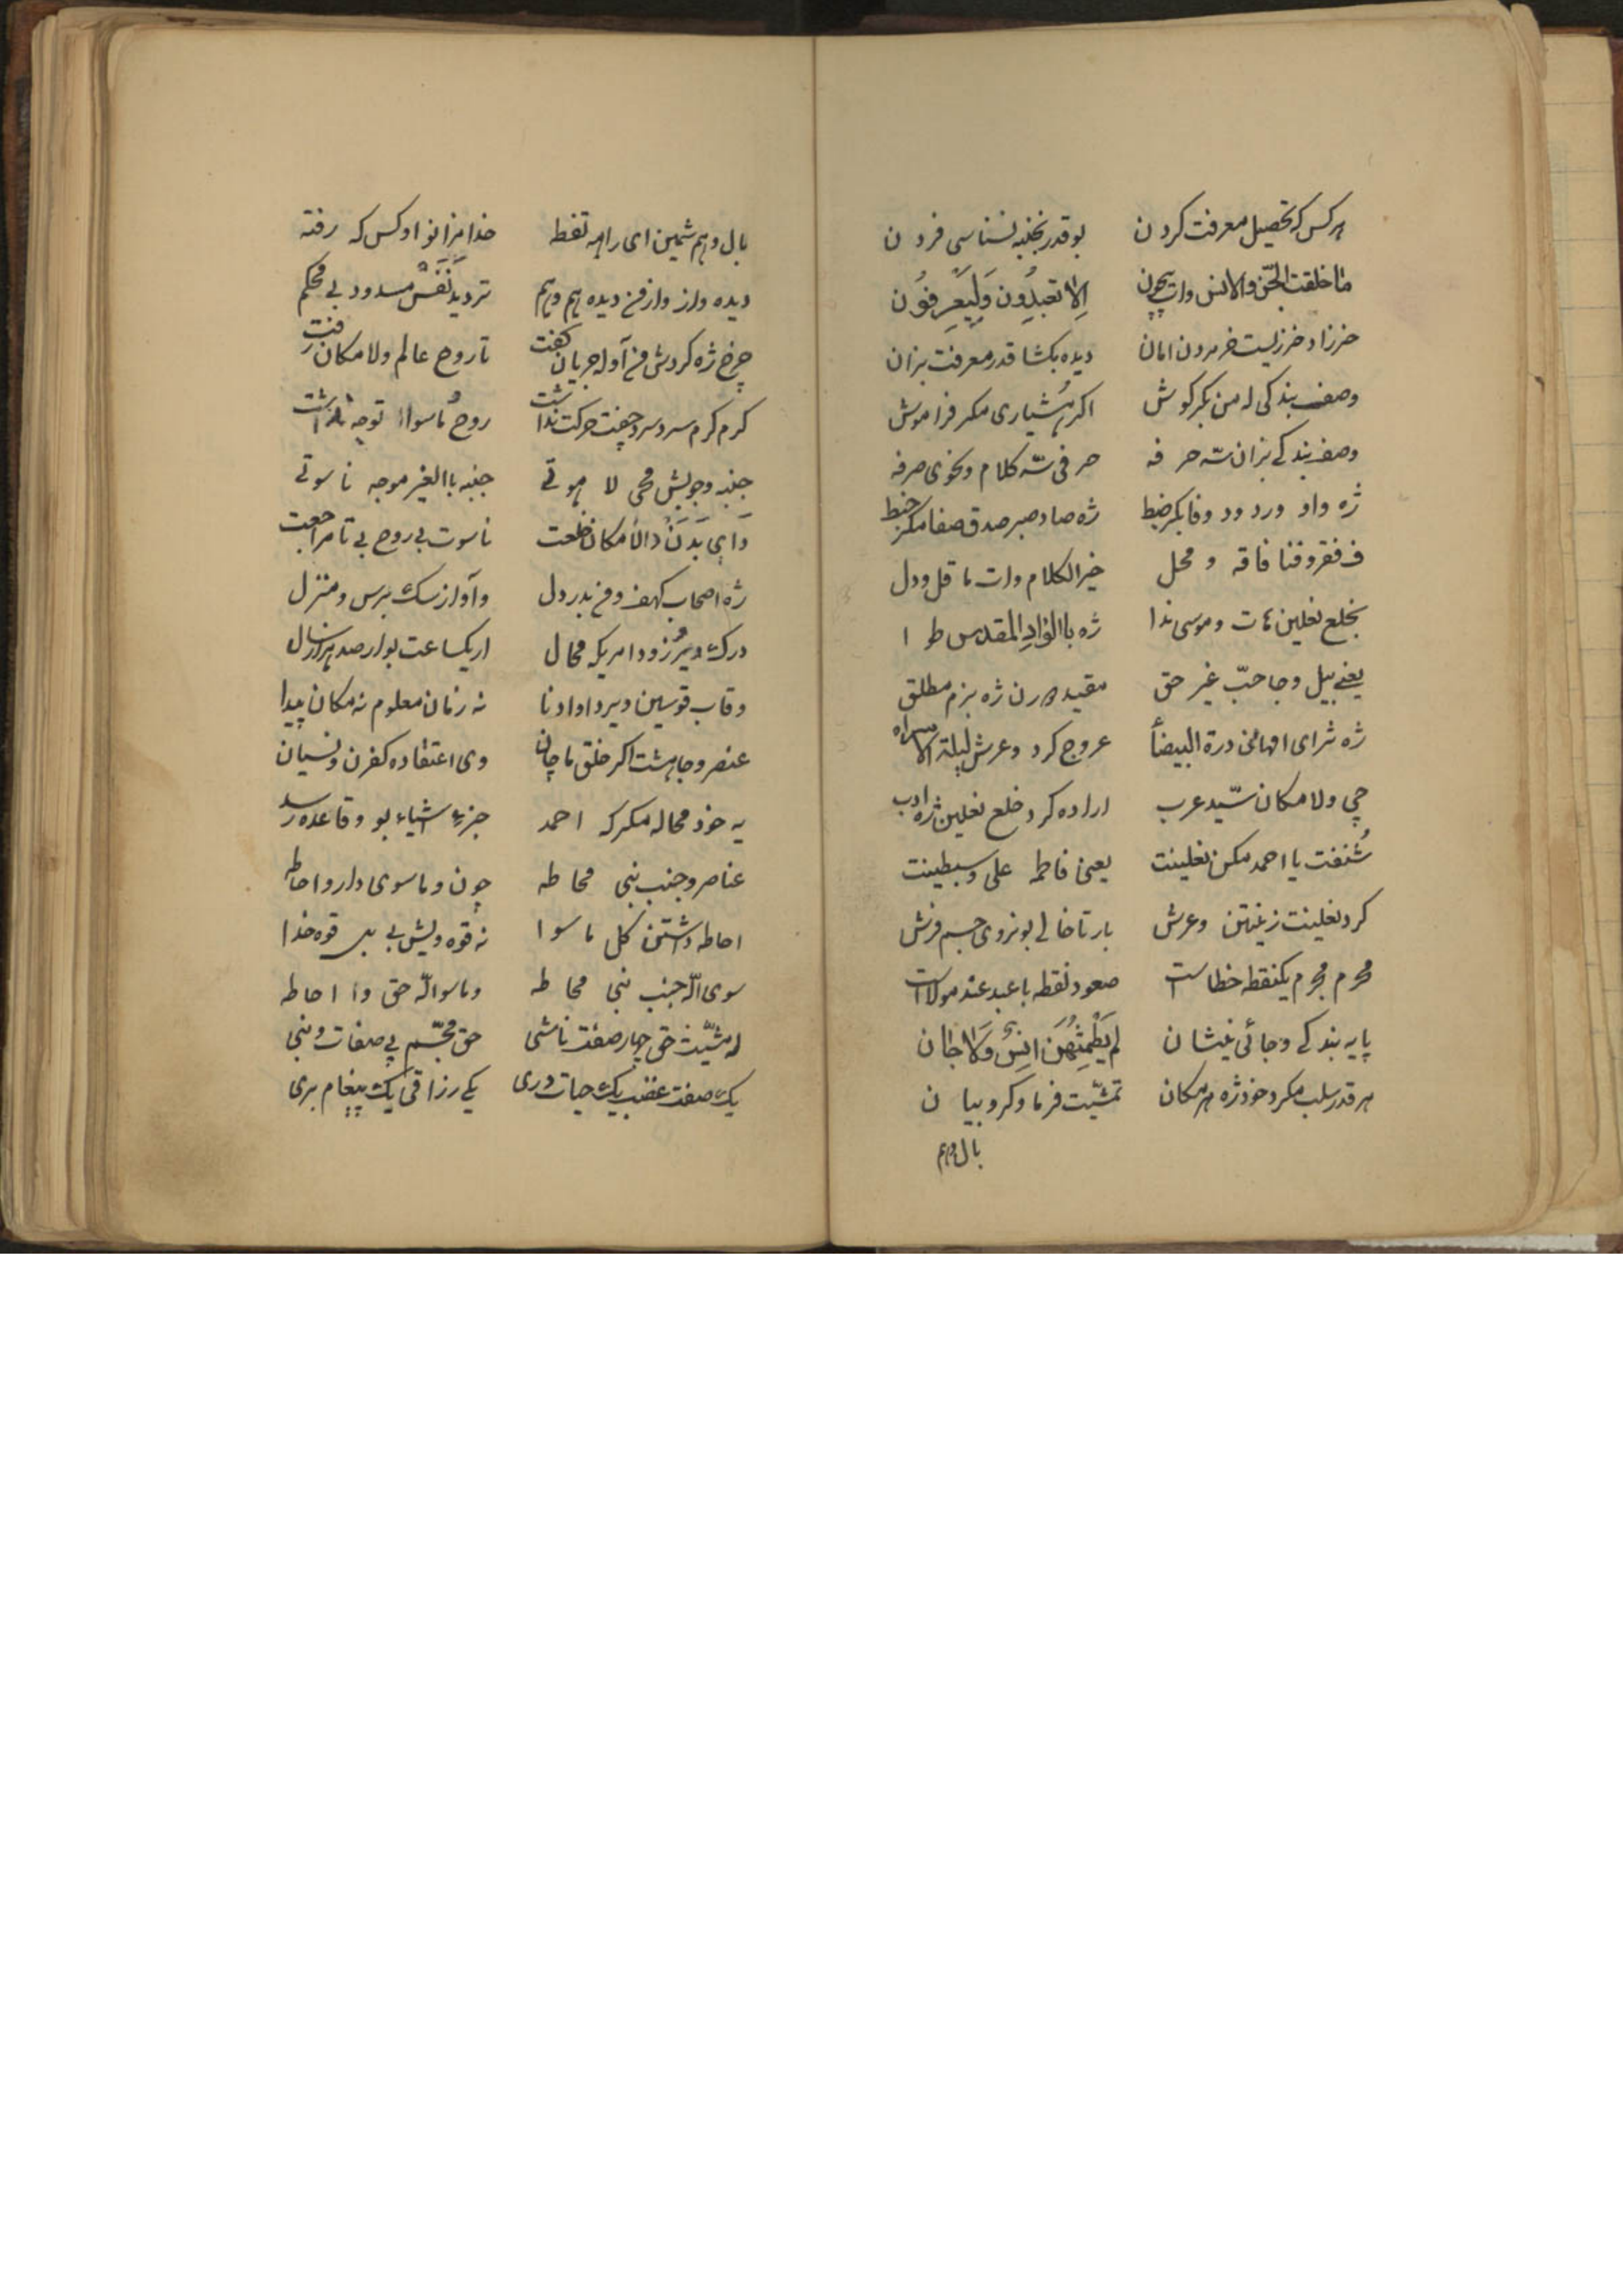 هر کس که تحصیل معرفت کردن بو قدر بخنبه نسناسی فردن
ما خلقت الجن والانس وات بیچون الا تعبدون ولیعرفون
خرزاد خرزیست خر مردن امان دیده بکشا قدر معرفت بزان
وصف بندکی له من بکر کوش اکر هشیاری مکر فراموش
وصف بندکی بزان سّه حرفه حرفی سّه کلام ونحوی صرفه
ژه واو ورد ود وفا بکر ضبط ژه صاد صبر صدق صفا مکر خبط
ف فقر وفنا فاقه و محل خیر الکلام وات ما قل ودل
بخلع نعلین هات و موسی ندا ژه باالواد المقدس طوا
یعنی بیل وجا حبّ غیر حق مقید ورن ژه بزم مطلق
ژه ثرای افهانی درة البیضأ عروج کرد وعرش لیلة الاسراه
چی ولامکان سّید عرب اراده کرد خلع نعلین ژه ادب
شُنفت یا احمد مکن نعلینت یعنی فاطمه علی وسبطینت
کرد نعلینت زینتن وعرش بار تا خالی بو نروی جسم فرش
محرم مجرم یکنقطه خطاست صعود نقطه با عبد عند مولاست
پایه بندکی وجائی نیشان لم یطمثهن انس ولا جان
هر قدر سلب مکرد خود ژه هر مکان تمشّیت فرما وکروبیان
بال وهم
بال وهم شمین ای راهه تفط خدا مزانو او کس که رفته
دیده واز واز فخ دیده هم وهم تردید نَفَس مسدود بی محکم
چرخ ژه کردش فخ آوله جریان کفت تا روح عالم ولامکان رفت
کرم کرم سرد سرد جفت حرکت نداشت روح ما سوا توجه نداشت
جنبه وجوبیش محی لاهوتی جنبه باالغیر موجه ناسوتی
وای بدن دالأمکان خلعت ناسوت بی روح بی تا مراجعت
ژه اصحاب کهف وفخ بدر دل وآواز سک برس ومنزل
درک دیر زود امریکه محال ار یکساعت بو ار صد هزار سال
وقاب قوسین ویرد اوادنا نه زمان معلوم نه مکان پیدا
عنصر وجا هشت اکر خلق ما چان وی اعتقاده کفرن ونسیان
یه خود محاله مکر که احمد جزءِ اشیاء بو وقاعده رسد
عناصر وجنب نبی محاطه چون وما سوی دارو احاطه
احاطه داشتن کل ما سوا نه قوه ویش بی بی قوه خدا
سوی الّه جنب نبی محاطه وما سوالّه حق وا احاطه
له مشّیت حق چهار صفت ناشی حق مجّسم بی صفات ونبی
یک صفت غضب یک حیات وری یکی رزاقی یک پیغام بری